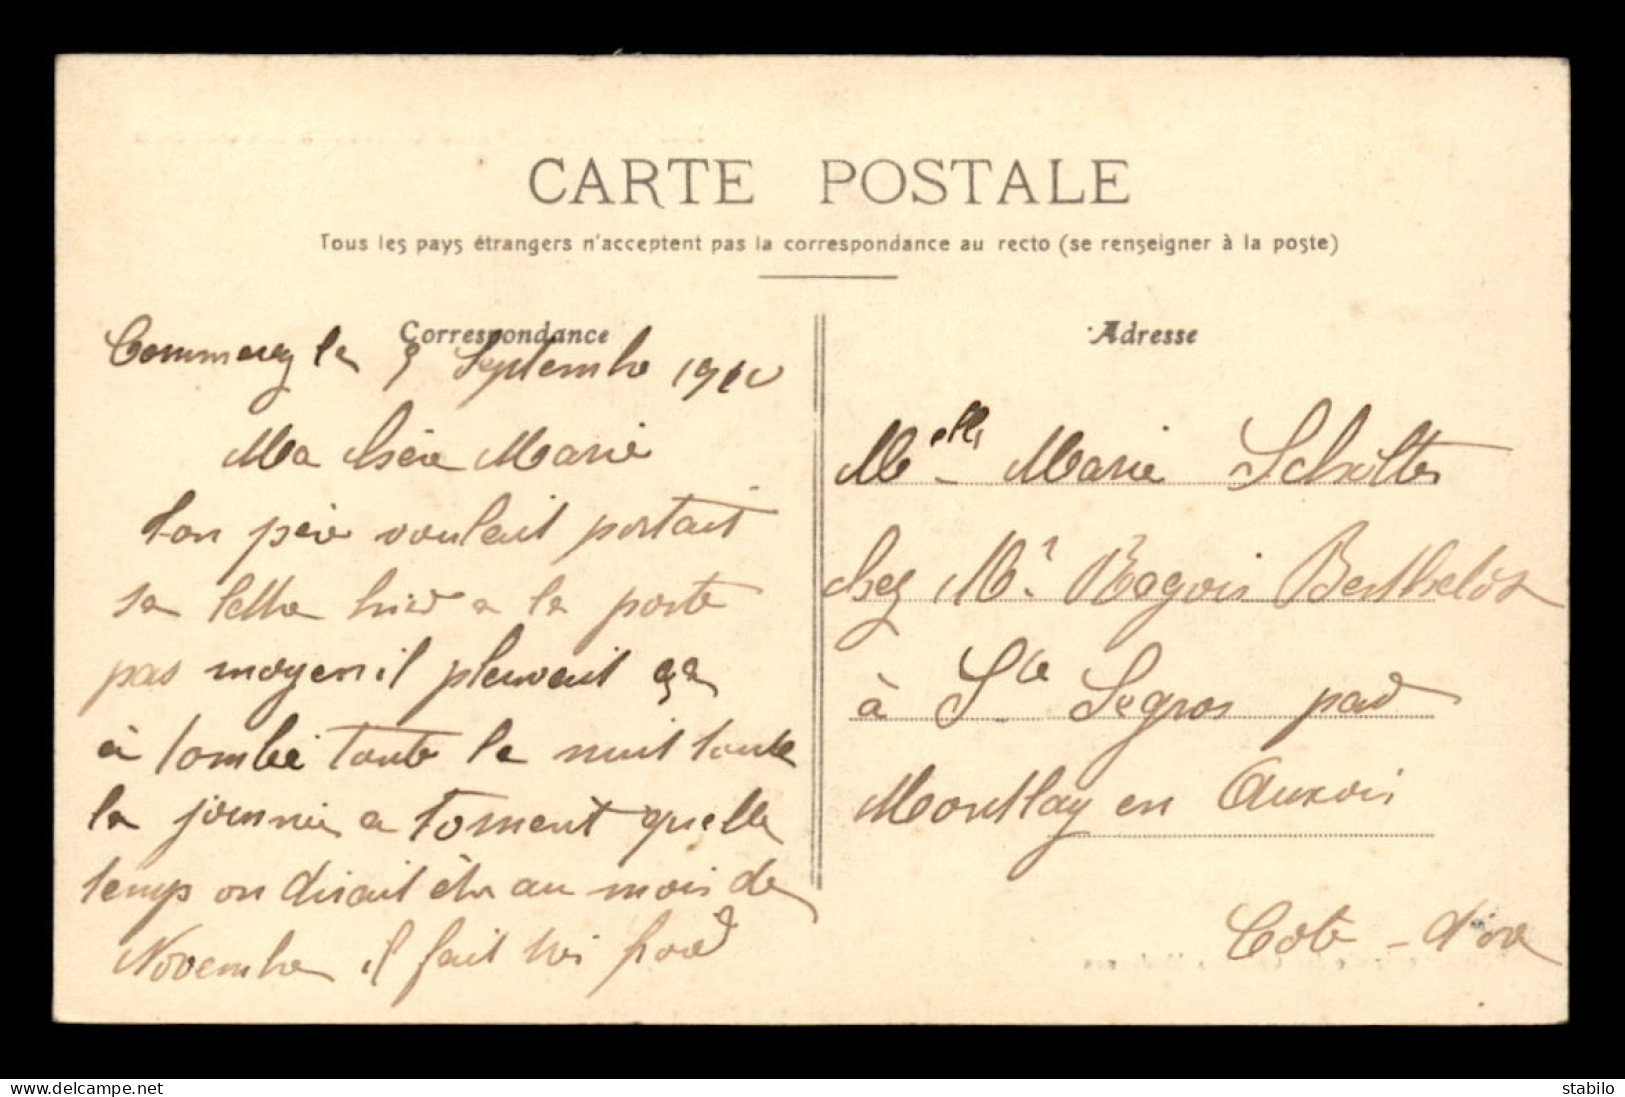 CARTE POSTALE
Tous les pays étrangers n'acceptent pas la correspondance au recto (se renseigner à la poste)
Correspondance
Commercy le 9 Septembre 1910
Ma chère Marie
ton père voulait portait
sa lettre hier a la poste
pas moyen il pleuvait ça
à tombé toute la nuit toute
la journée a torment quelle
temps on dirait être au mois de
Novembre il fait très froid
Adresse
Melle Marie Scholtes
chez Mr Ragois Berthelot
à Ste Segros par
Monthlay en Auxois
Cote - d'or
delcampe.net
stabilo